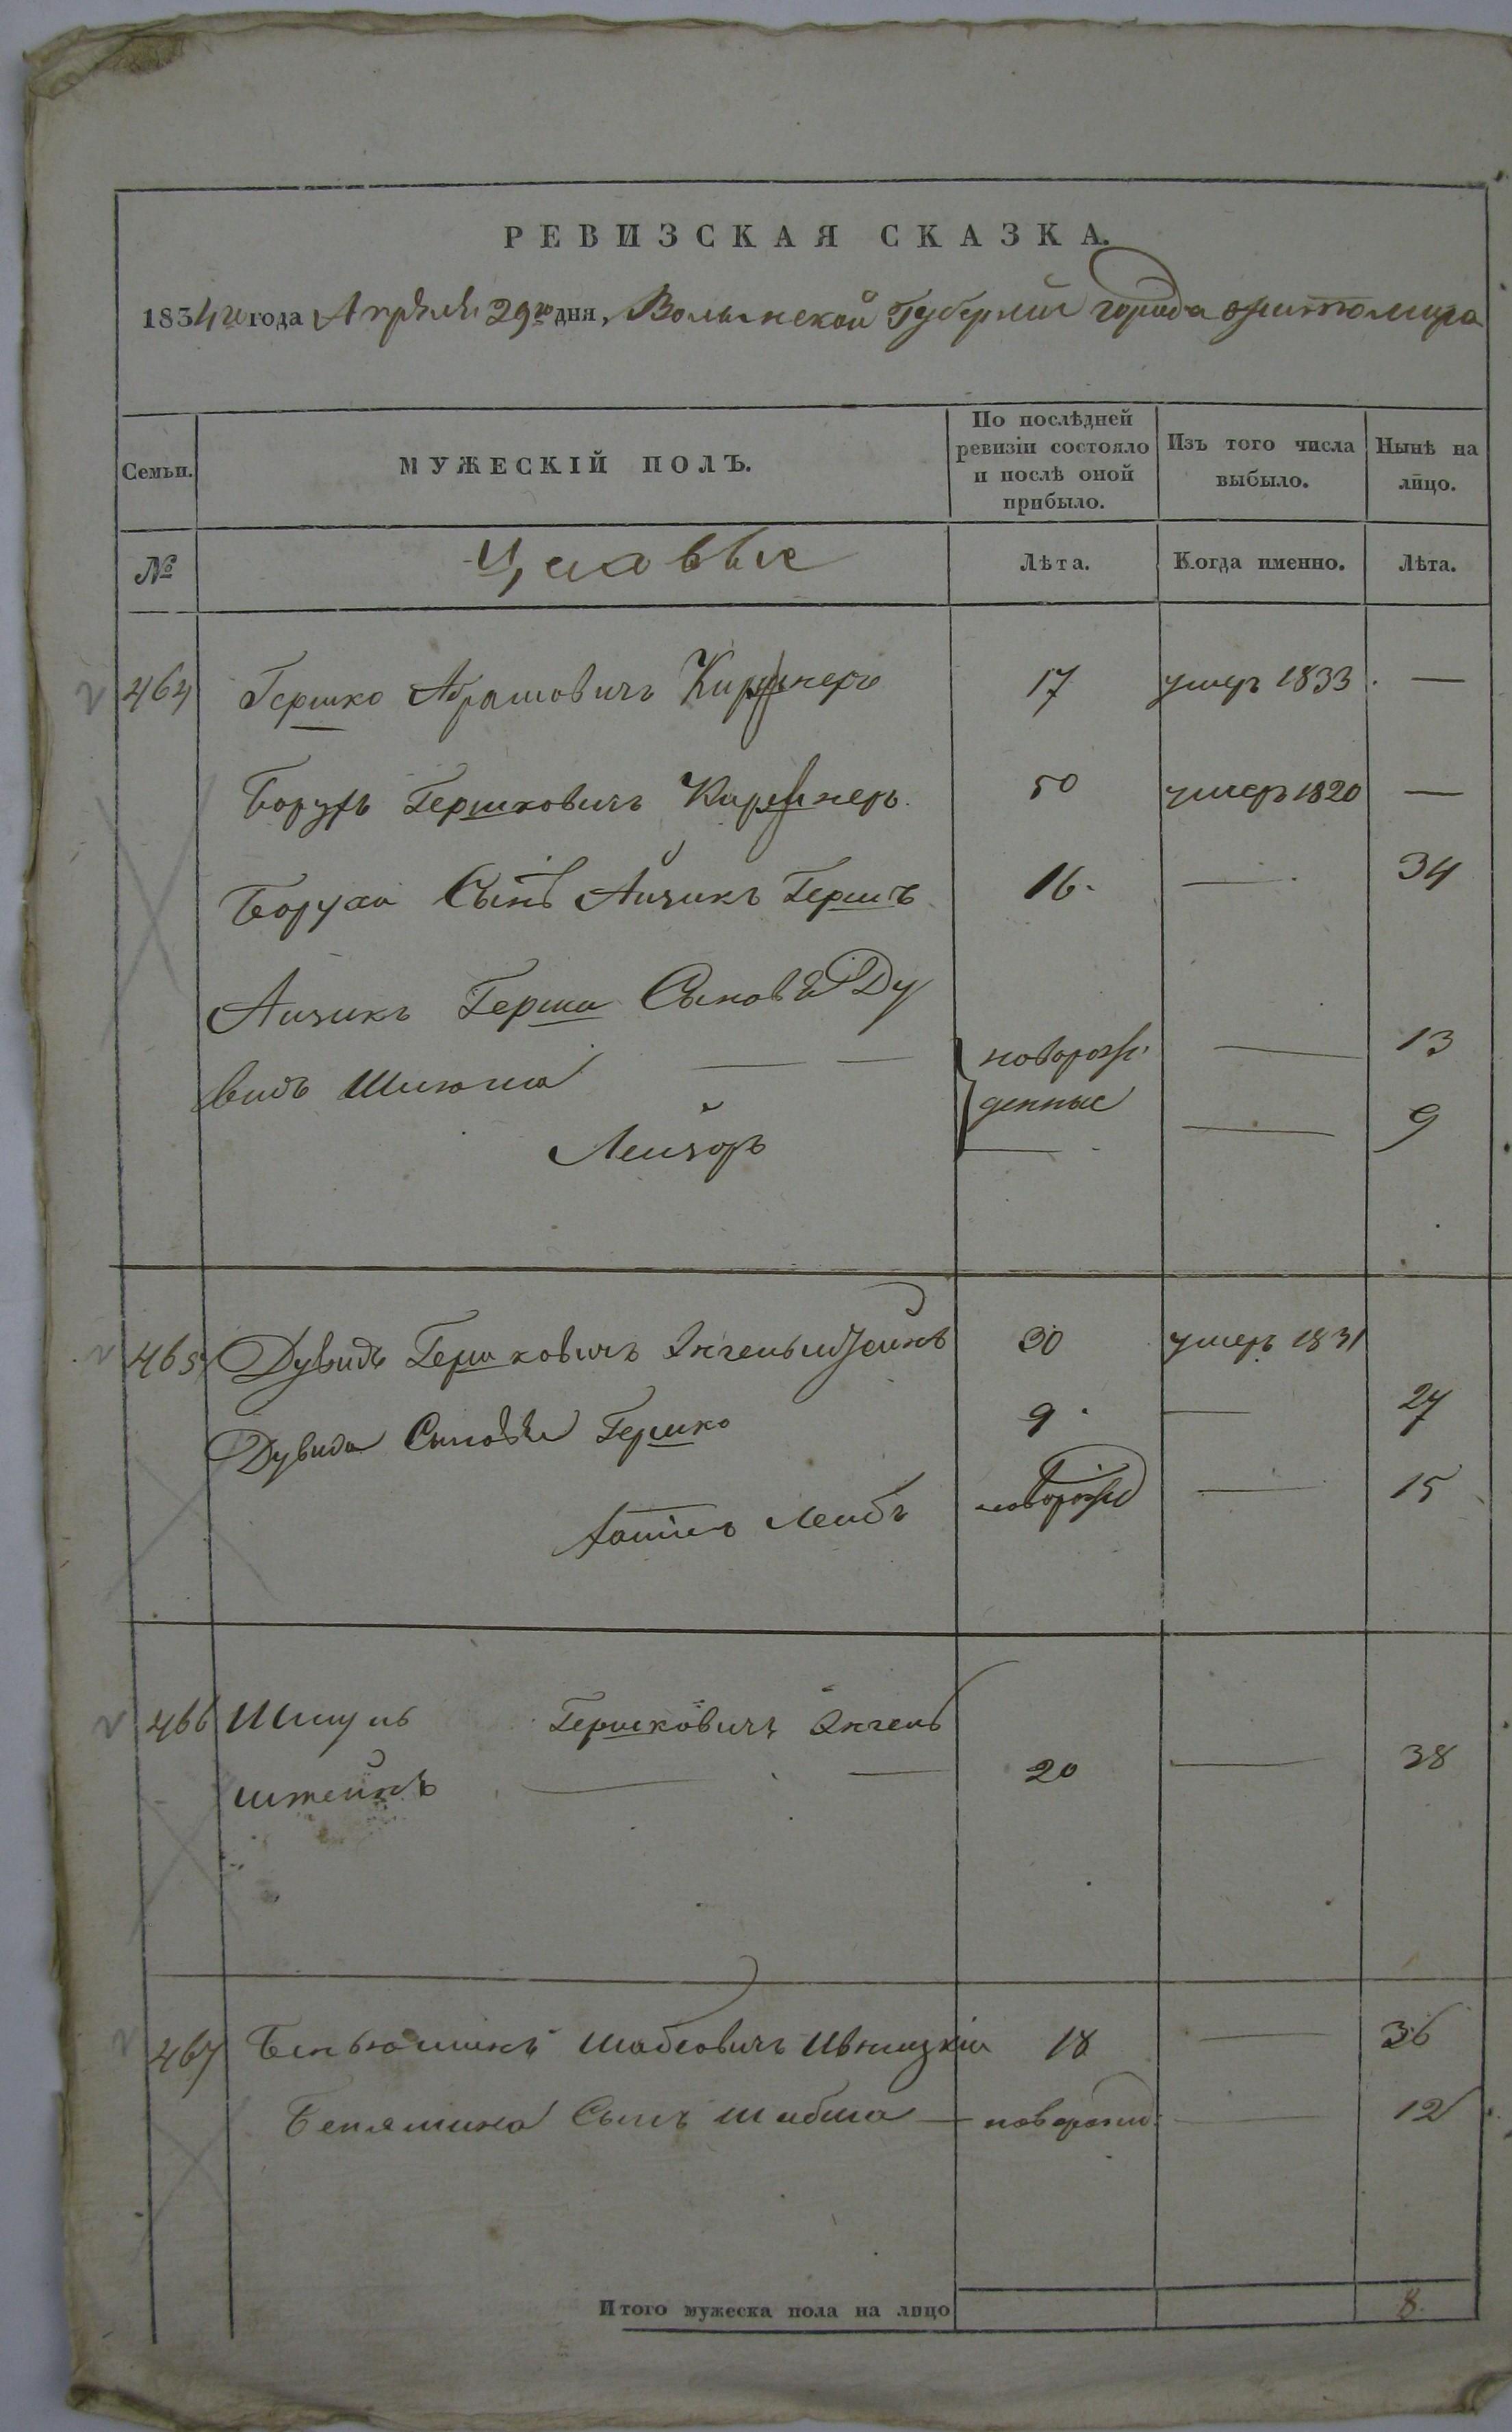 РЕВИЗСКАЯ СКАЗКА.
1834го года Апрѣля 29го дня, Волынской Губерніи города Житомира
Семьи. МУЖЕСКІЙ ПОЛЪ. По послѣдней ревизіи состояло и послѣ оной прибыло. Изъ того числа выбыло. Нынѣ на лицо.
№ Лѣта. Когда именно. Лѣта.
464 Гершко Абрамовичъ 17 умеръ 1833 —
Борухъ Гершковичъ Киршнеръ 50 умеръ 1820 —
Боруха Сынъ Айзикъ Гершъ 16 — 34
Айзикъ Герша Сыновья Ду
видъ Шлюма — — новорож 13
Лейзоръ денные — 9
465 Дувидъ Гершковичъ Энгельштейнъ 30 умеръ 1831
Дувида Сыновья Гершко 9 — 27
Лейбъ новорожд — 15
466 Шмуль Гершковичъ Энгель
штейнъ — — 20 — 38
467 Беньюминъ Шабсовичъ Ивницкій 18 — 36
Бенямина Сынъ Шабша — новорожд. — 12
Итого мужеска пола на лицо 8.